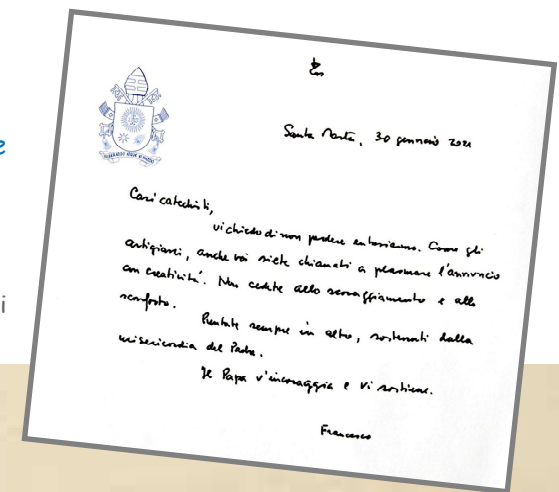 e
i
MISERANDO ATQUE ELIGENDO
Santa Marta, 30 gennaio 2021
Cari catechisti,
vi chiedo di non perdere entusiasmo. Come gli
artigiani, anche voi siete chiamati a plasmare l'annuncio
con creatività. Non cedete allo scoraggiamento e allo
sconforto.
Puntate sempre in alto, sostenuti dalla
misericordia del Padre.
Il Papa v'incoraggia e vi sostiene.
Francesco